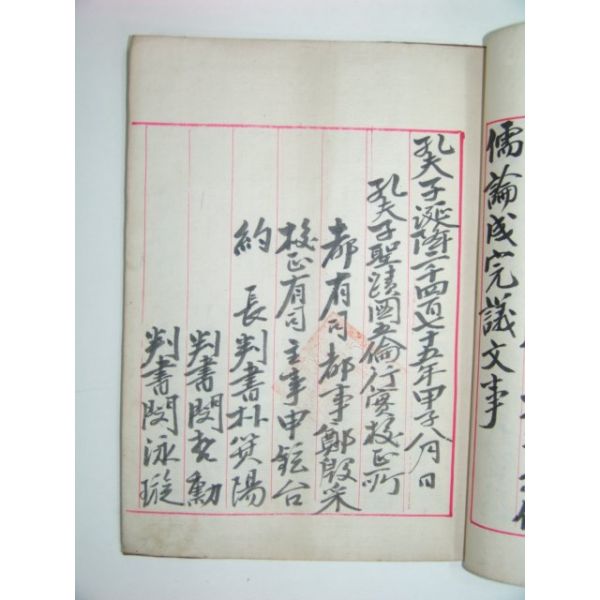 儒論成完議文事
孔夫子誕降二千四百七十五年甲子八月日
孔夫子聖蹟圖五倫行實校正所
都有司都事鄭殷采
校正有司主事申鉉台
約長判書朴箕陽
判書閔哲勳
判書閔泳璇